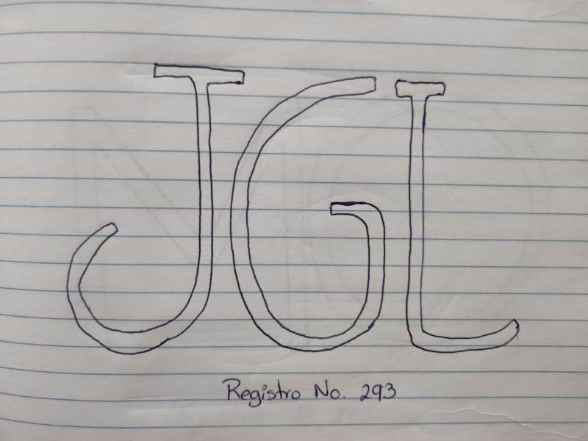 JGL
Registro No. 293